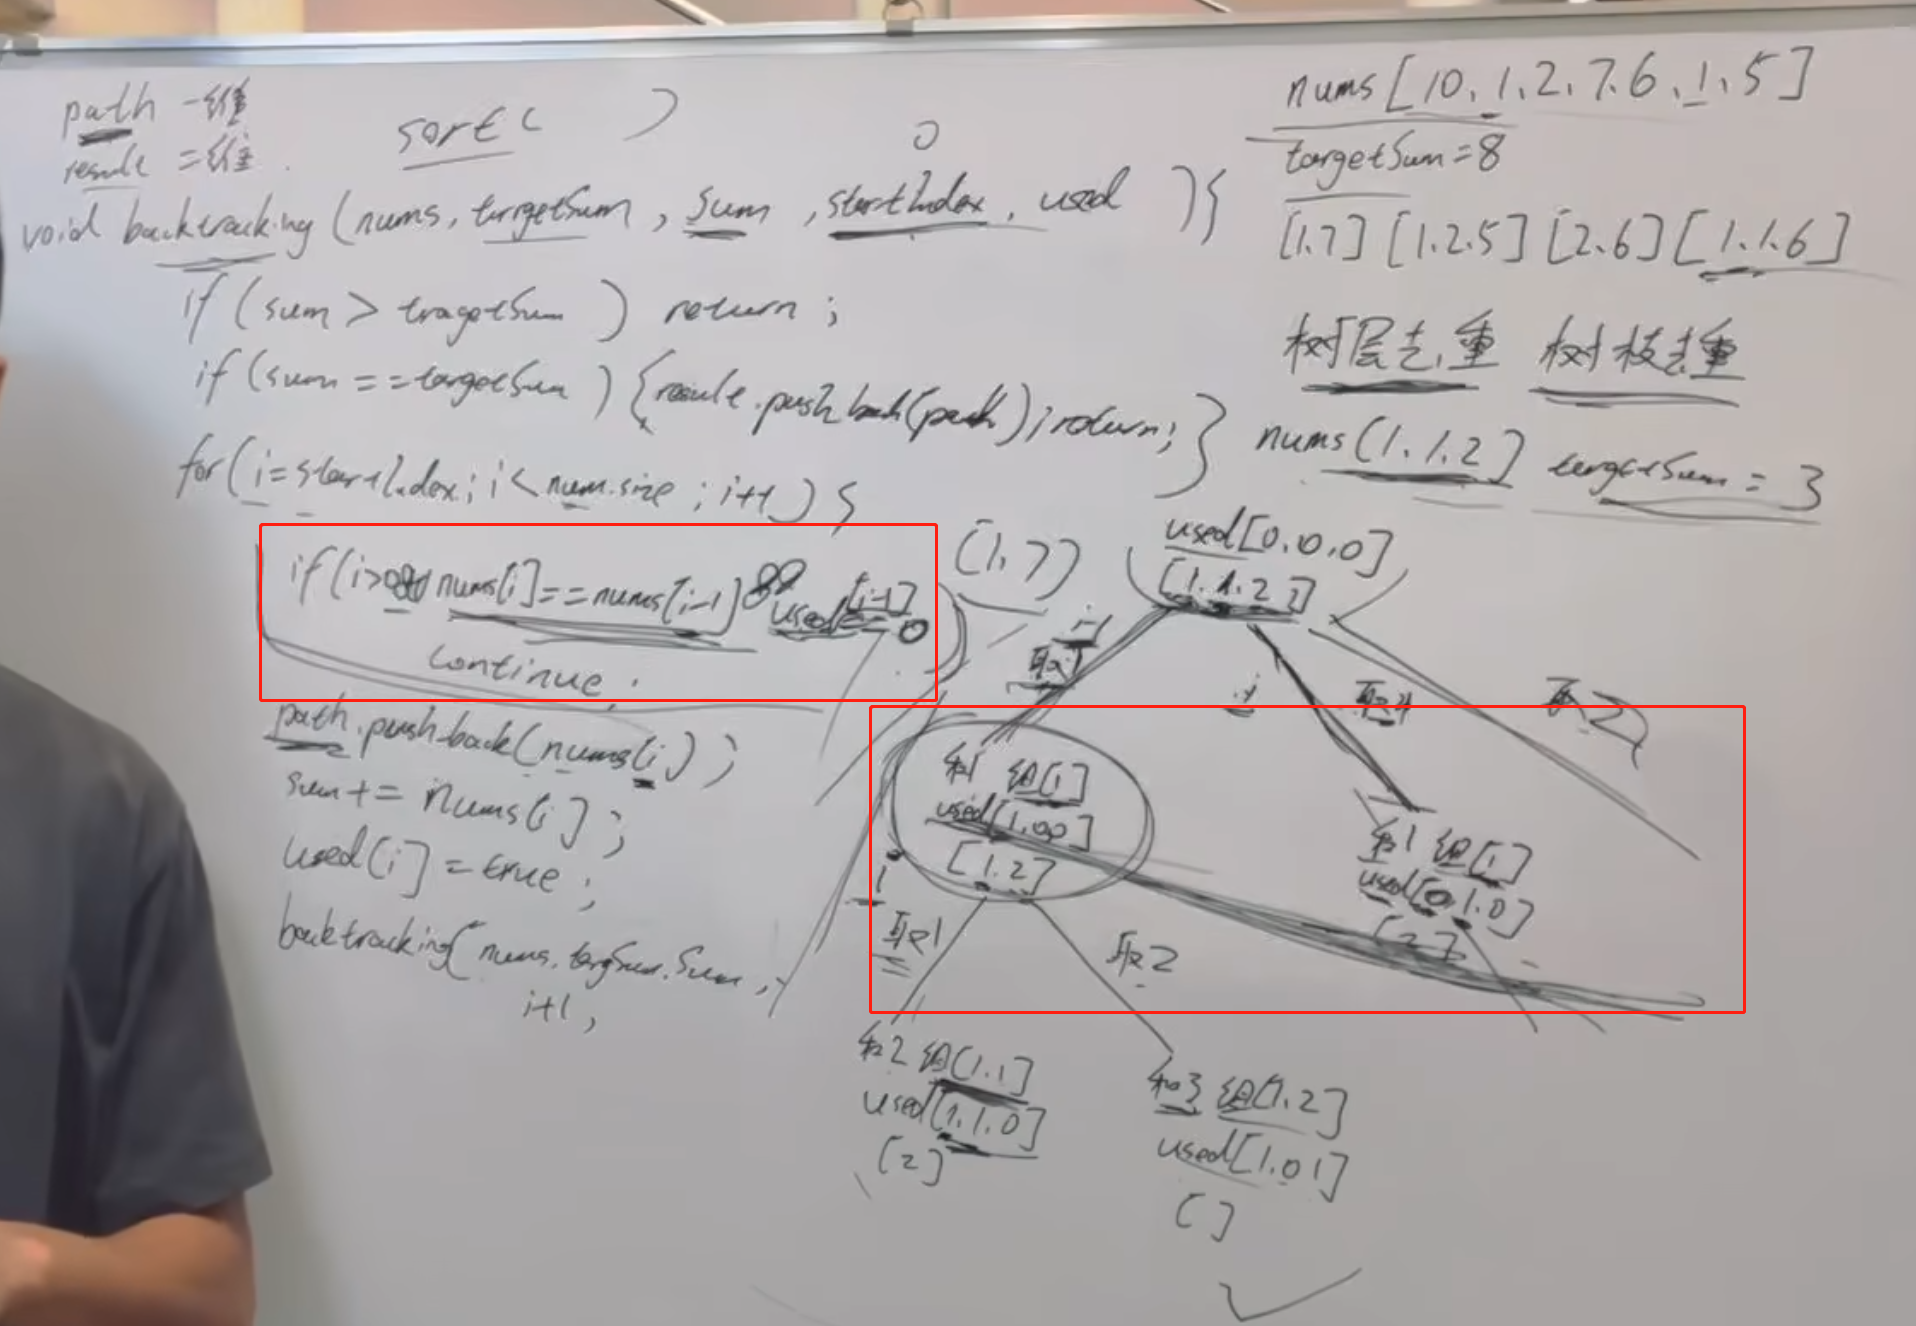 path 一维
result 二维
sort( )
0
void backtracking (nums, targetSum, sum, startIndex, used ){
if (sum > tragetSum ) return ;
if (sum == targetSum ) {result.push back(path); return; }
for( i = startIndex; i < num.size ; i++ ) {
if (i>0 && nums[i] == nums[i-1] && used[i-1] == 0
)
continue ;
path.push back(nums[i]) ;
sum += nums[i] ;
used[i] = true ;
backtracking( nums, targSum, Sum,
i+1,
nums [10, 1, 2, 7, 6, 1, 5]
targetSum = 8
[1.7] [1.2.5] [2.6] [1.1.6]
树层去重 树枝去重
nums(1.1.2] targetSum = 3
(1,7)
used[0.0.0]
[1.1.2]
取1
取1
取2
和1 组[1]
used[1.00]
[1.2]
和1 组[1]
used[0.1.0]
[2]
i
取1
取2
和2 组[1.1]
used[1.1.0]
[2]
和3 组[1.2]
used[1.01]
[ ]